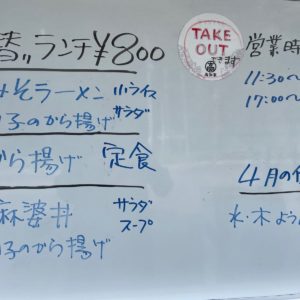 替〃ランチ¥800
みそラーメン 小ライス
サラダ
子のから揚げ
から揚げ 定食
麻婆丼 サラダ
スープ
子のから揚げ
TAKE
OUT
できます
営業時
11:30〜
17:00〜
4月の
水・木よう